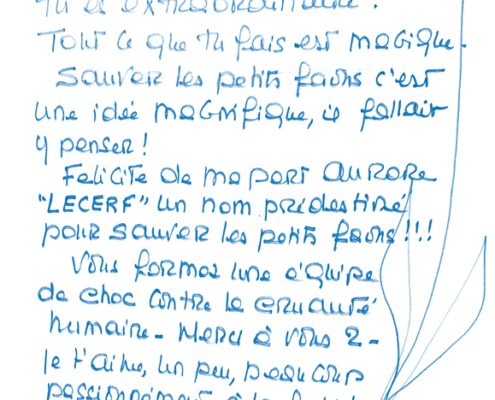 Tu es extraordinaire !
Tout ce que tu fais est magique.
Sauver les petits faons c'est
une idée magnifique, il fallait
y penser !
Felicite de ma part AURORE
"LECERF" un nom prédestiné
pour sauver les petits faons !!!
Vous formez une équipe
de choc contre la cruauté
humaine - Merci à vous 2 -
Je t'aime, un peu, beaucoup
passionnément à la